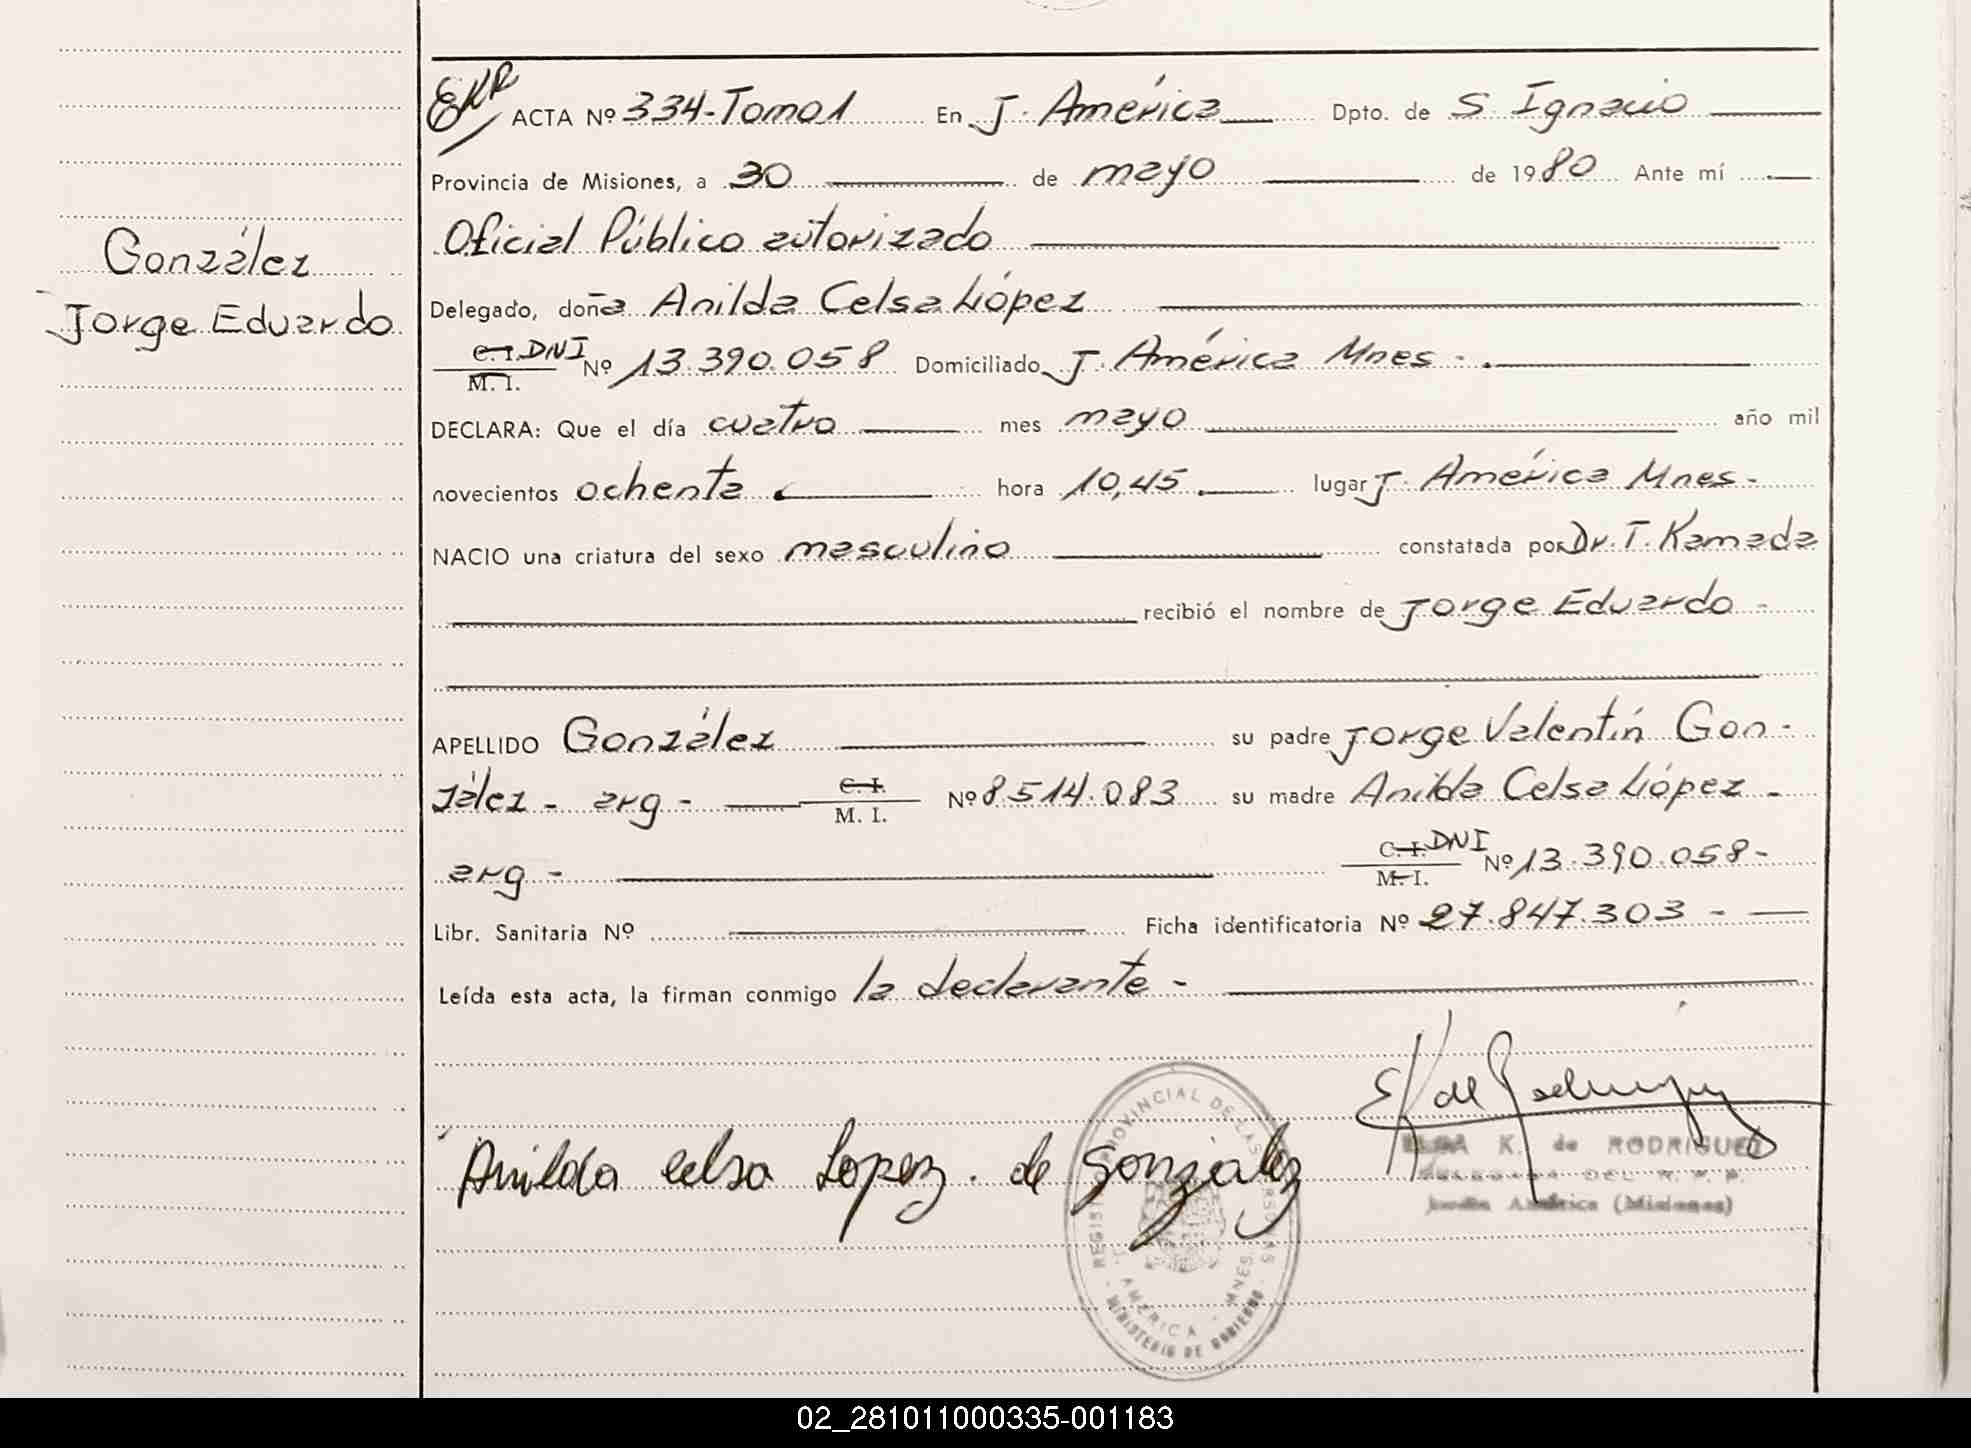 EKR ACTA Nº 334-Tomo 1 En J. América Dpto. de S. Ignacio
Provincia de Misiones, a 30 de mayo de 1980 Ante mí
Oficial Público autorizado
González
Jorge Eduardo
Delegado, doña Anilda Celsa López
C.I. DNI Nº 13.390.058 Domiciliado J. América Mnes.
M. I.
DECLARA: Que el día cuatro mes mayo año mil
novecientos ochenta hora 10,45 lugar J. América Mnes-
NACIO una criatura del sexo masculino constatada por Dr. T. Kamada
recibió el nombre de Jorge Eduardo -
APELLIDO González su padre Jorge Valentín Gon-
zález - arg - C. I. Nº 8.514.083 su madre Anilda Celsa López -
M. I.
arg - C. I. DNI Nº 13.390.058-
M. I.
Libr. Sanitaria Nº Ficha identificatoria Nº 27.847.303 -
Leída esta acta, la firman conmigo la declarante -
EK de Rodriguez
Anilda Celsa Lopez. de Gonzalez
ELSA K. de RODRIGUEZ
DELEGADA DEL R. P. P.
Jardín América (Misiones)
REGISTRO PROVINCIAL DE LAS PERSONAS
AMERICA - MNES.
MINISTERIO DE GOBIERNO
02_281011000335-001183